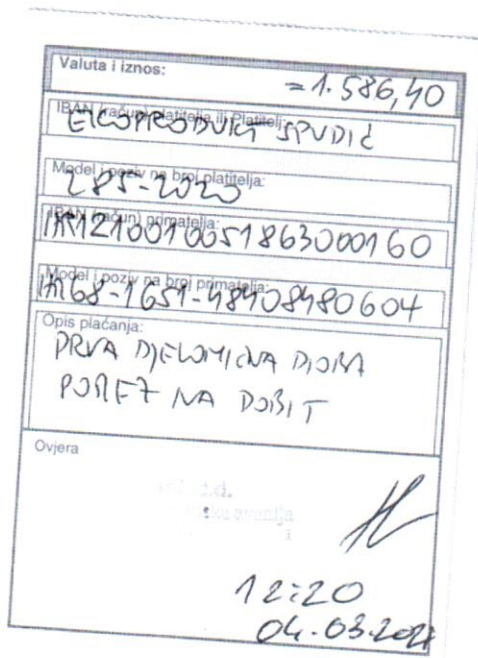 Valuta i iznos:
=1.586,40
IBAN (račun) platitelja ili Platitelj:
EKOPRODUKT SPUDIĆ
Model i poziv na broj platitelja:
285-2020
IBAN (račun) primatelja:
HR1210010051863000160
Model i poziv na broj primatelja:
HR68-1651-48408480604
Opis plaćanja:
PRVA DJELOMIČNA DIOBA
POREZ NA DOBIT
Ovjera
d.d.
12:20
04.03.2021